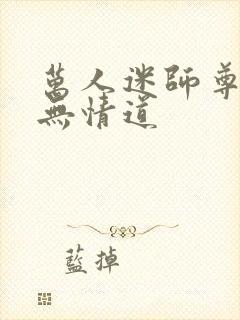 萬人迷師尊
無情道
藍掉